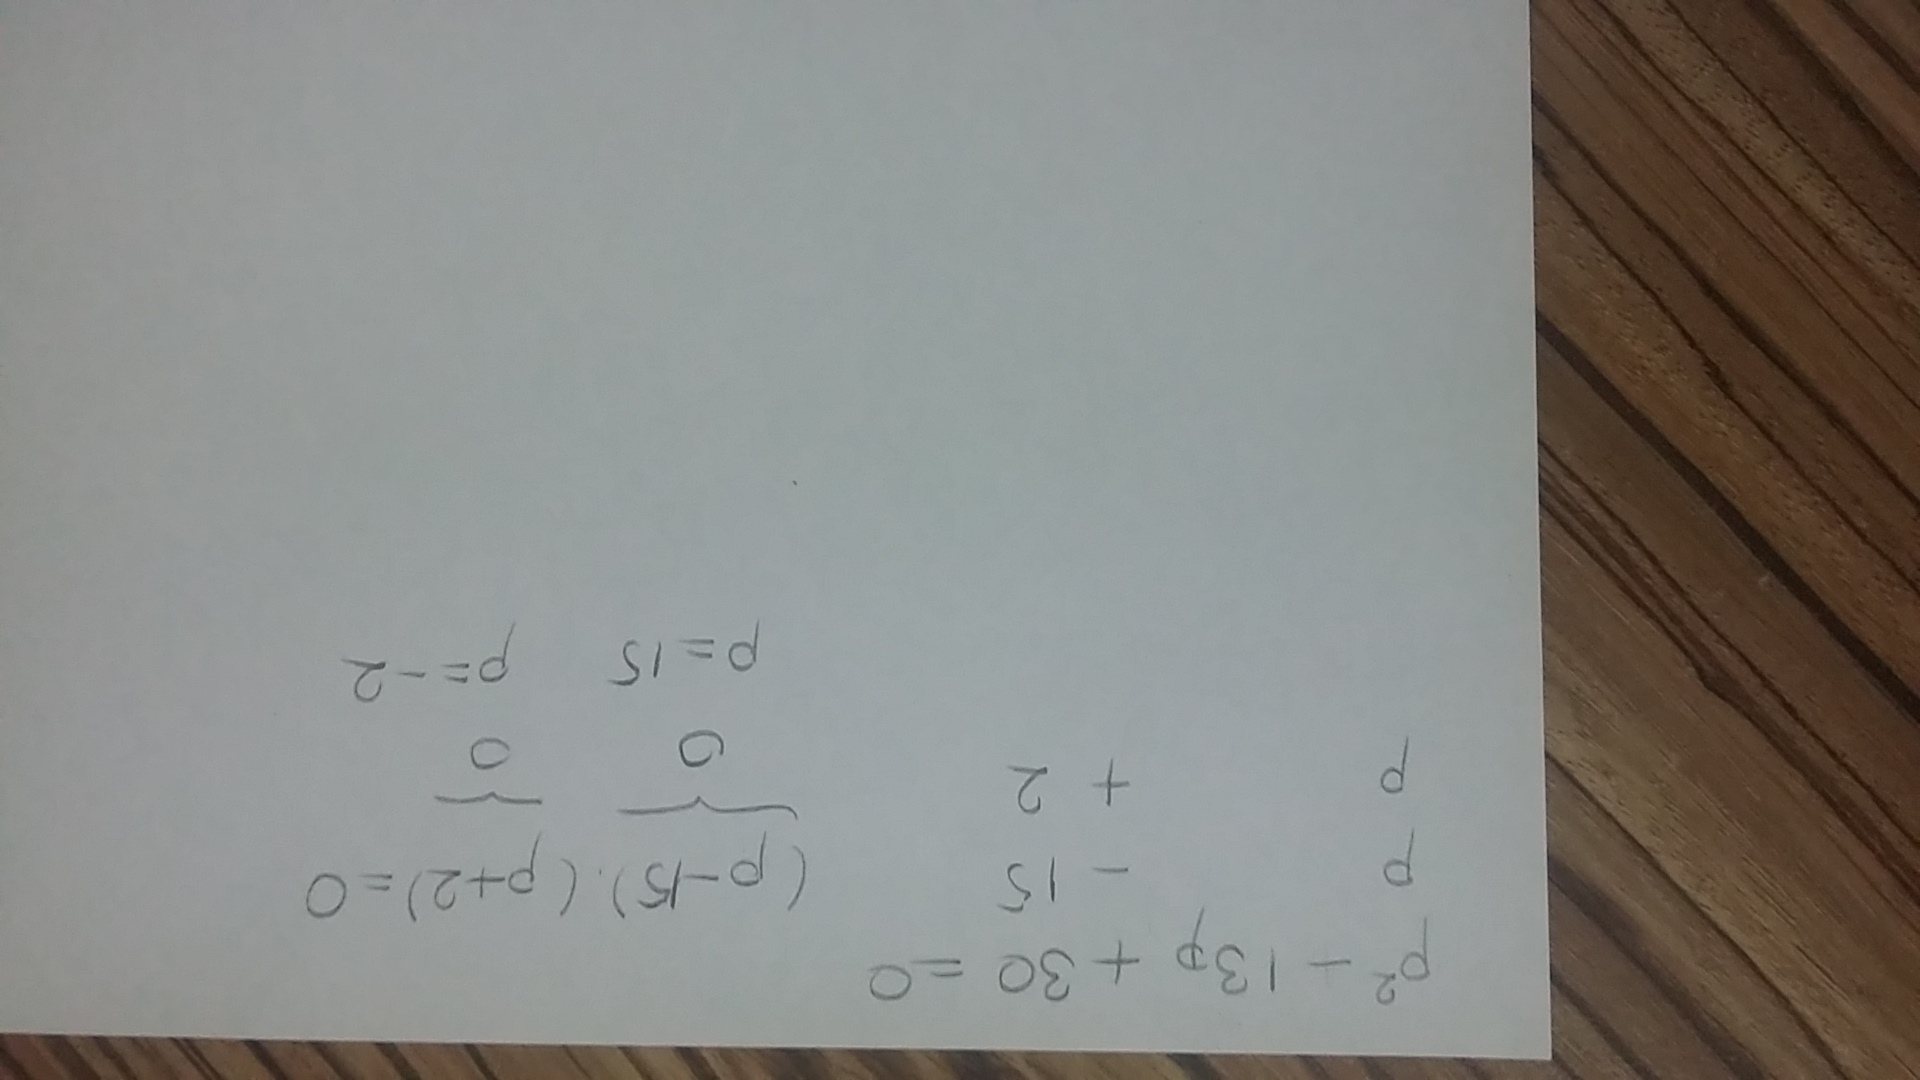 p² - 13p + 30 = 0
p - 15 (p-15).(p+2)=0
p + 2 0 0
p=15 p=-2